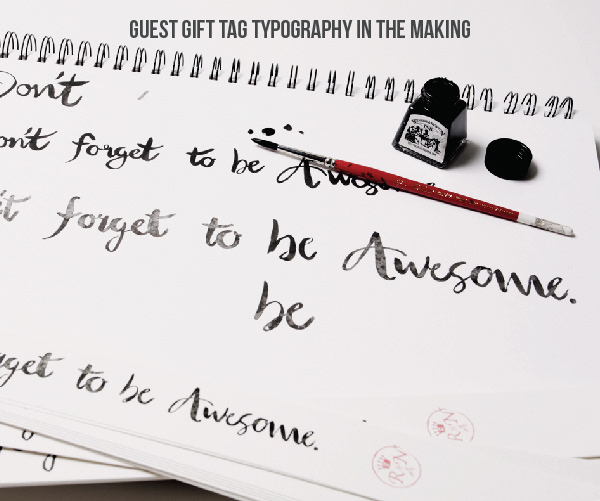 GUEST GIFT TAG TYPOGRAPHY IN THE MAKING
Don't
forget to be Awesome
forget to be Awesome.
be
to be Awesome.